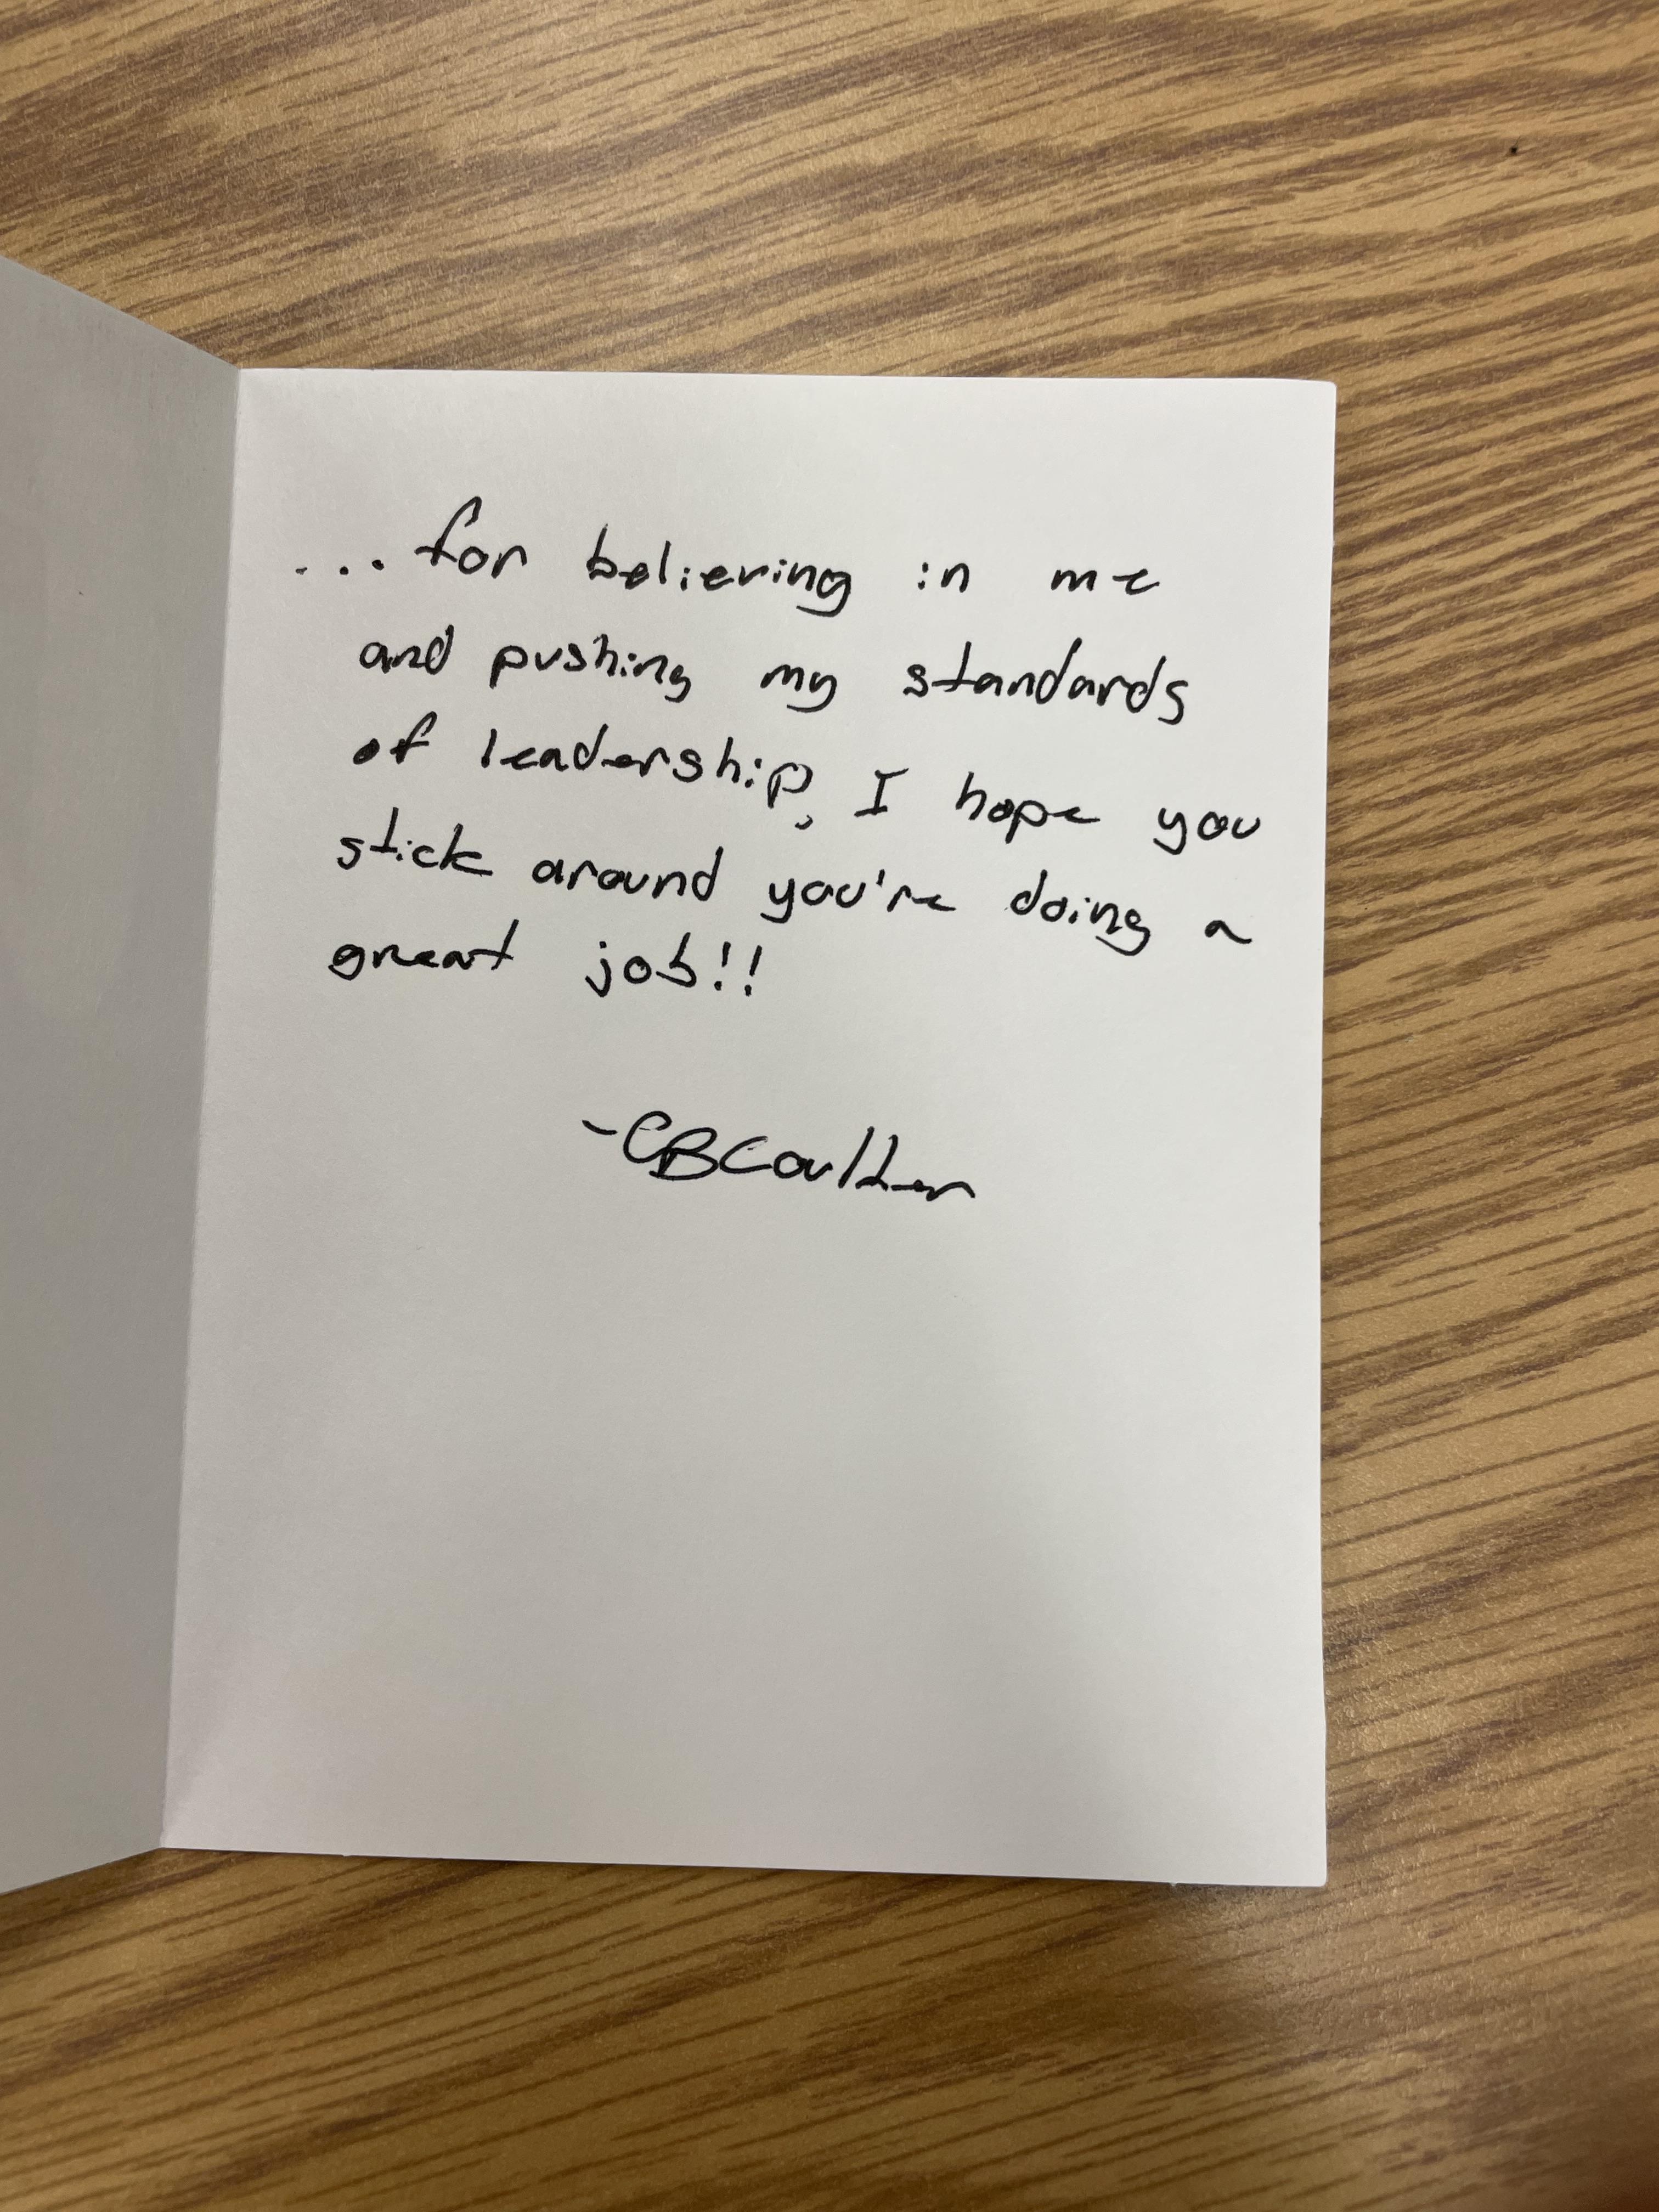 ...for believing in me
and pushing my standards
of leadership, I hope you
stick around you're doing a
great job!!
-CBCoulter